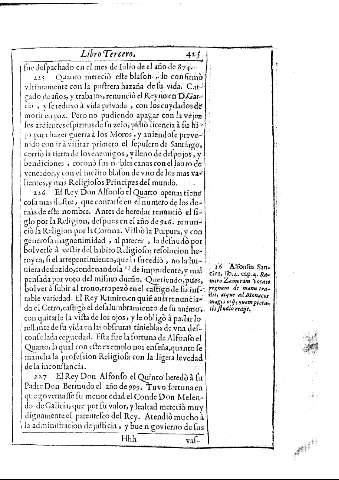 Libro Tercero. 425
fue despachado en el mes de Iulio de el año de 874.
225 Quanto mereciò este blason, lo confirmò
vltimamente con la postrera hazaña de su vida. Car-
gado de años, y trabajos, renunciò el Reyno en D. Gar-
cia, y se reduxo à vida privada, con los cuydados de
morir en paz. Pero no pudiendo apagar con la vejez
los ardientes espiritus de su zelo, pidiò licencia à su hi-
jo para hazer guerra à los Moros, y aniendose preve-
nido con ir à visitar primero el sepulcro de Santiago,
corriò la tierra de los enemigos, y lleno de despojos, y
bendiciones, coronò sus nobles canas con el lauro de
vencedor, y con el inclito blason de vno de los mas va-
lientes, y mas Religiosos Principes del mundo.
226 El Rey Don Alfonso el Quarto apenas tiene
cosa mas ilustre, que contarse en el numero de los de-
màs de este nombre. Antes de heredar renunciò el si-
glo por la Religion, despues en el año de 926. renun-
ciò la Religion por la Corona. Vistiò la Purpura, y con
generosa magnanimidad, al parecer, la desnudò por
bolverse à vestir del habito Religioso: resolucion he-
royca, si el arrepentimiento, que la sucediò, no la hu-
viera deslucido, condenandola 26 de imprudente, y mal
pensada por voto del mismo dueño. Queriendo, pues,
bolver à subir al trono, tropezò en el castigo de su ins-
table variedad. El Rey Ramiro, en quiẽ auia renuncia-
do el Cetro, castigò el deslumbramiento de su animo,
con quitarle la vista de los ojos, y le obligò à passar lo
restante de su vida en las obscuras tinieblas de vna des-
consolada ceguedad. Esta fue la fortuna de Alfonso el
Quarto, la qual con este exemplo nos enseña, quanto se
mancha la profession Religiosa con la ligera levedad
de la inconstancia.
227 El Rey Don Alfonso el Quinto heredò à su
Padre Don Bermudo el año de 999. Tuvo fortuna en
que governasse su menor edad el Conde Don Melen-
do de Galicia, que por su valor, y lealtad mereciò muy
dignamente el parentesco del Rey. Atendiò mucho à
la administracion de justicia, y buen govierno de sus
Hhh vas-
26 Alfonsus San-
tius,
magis